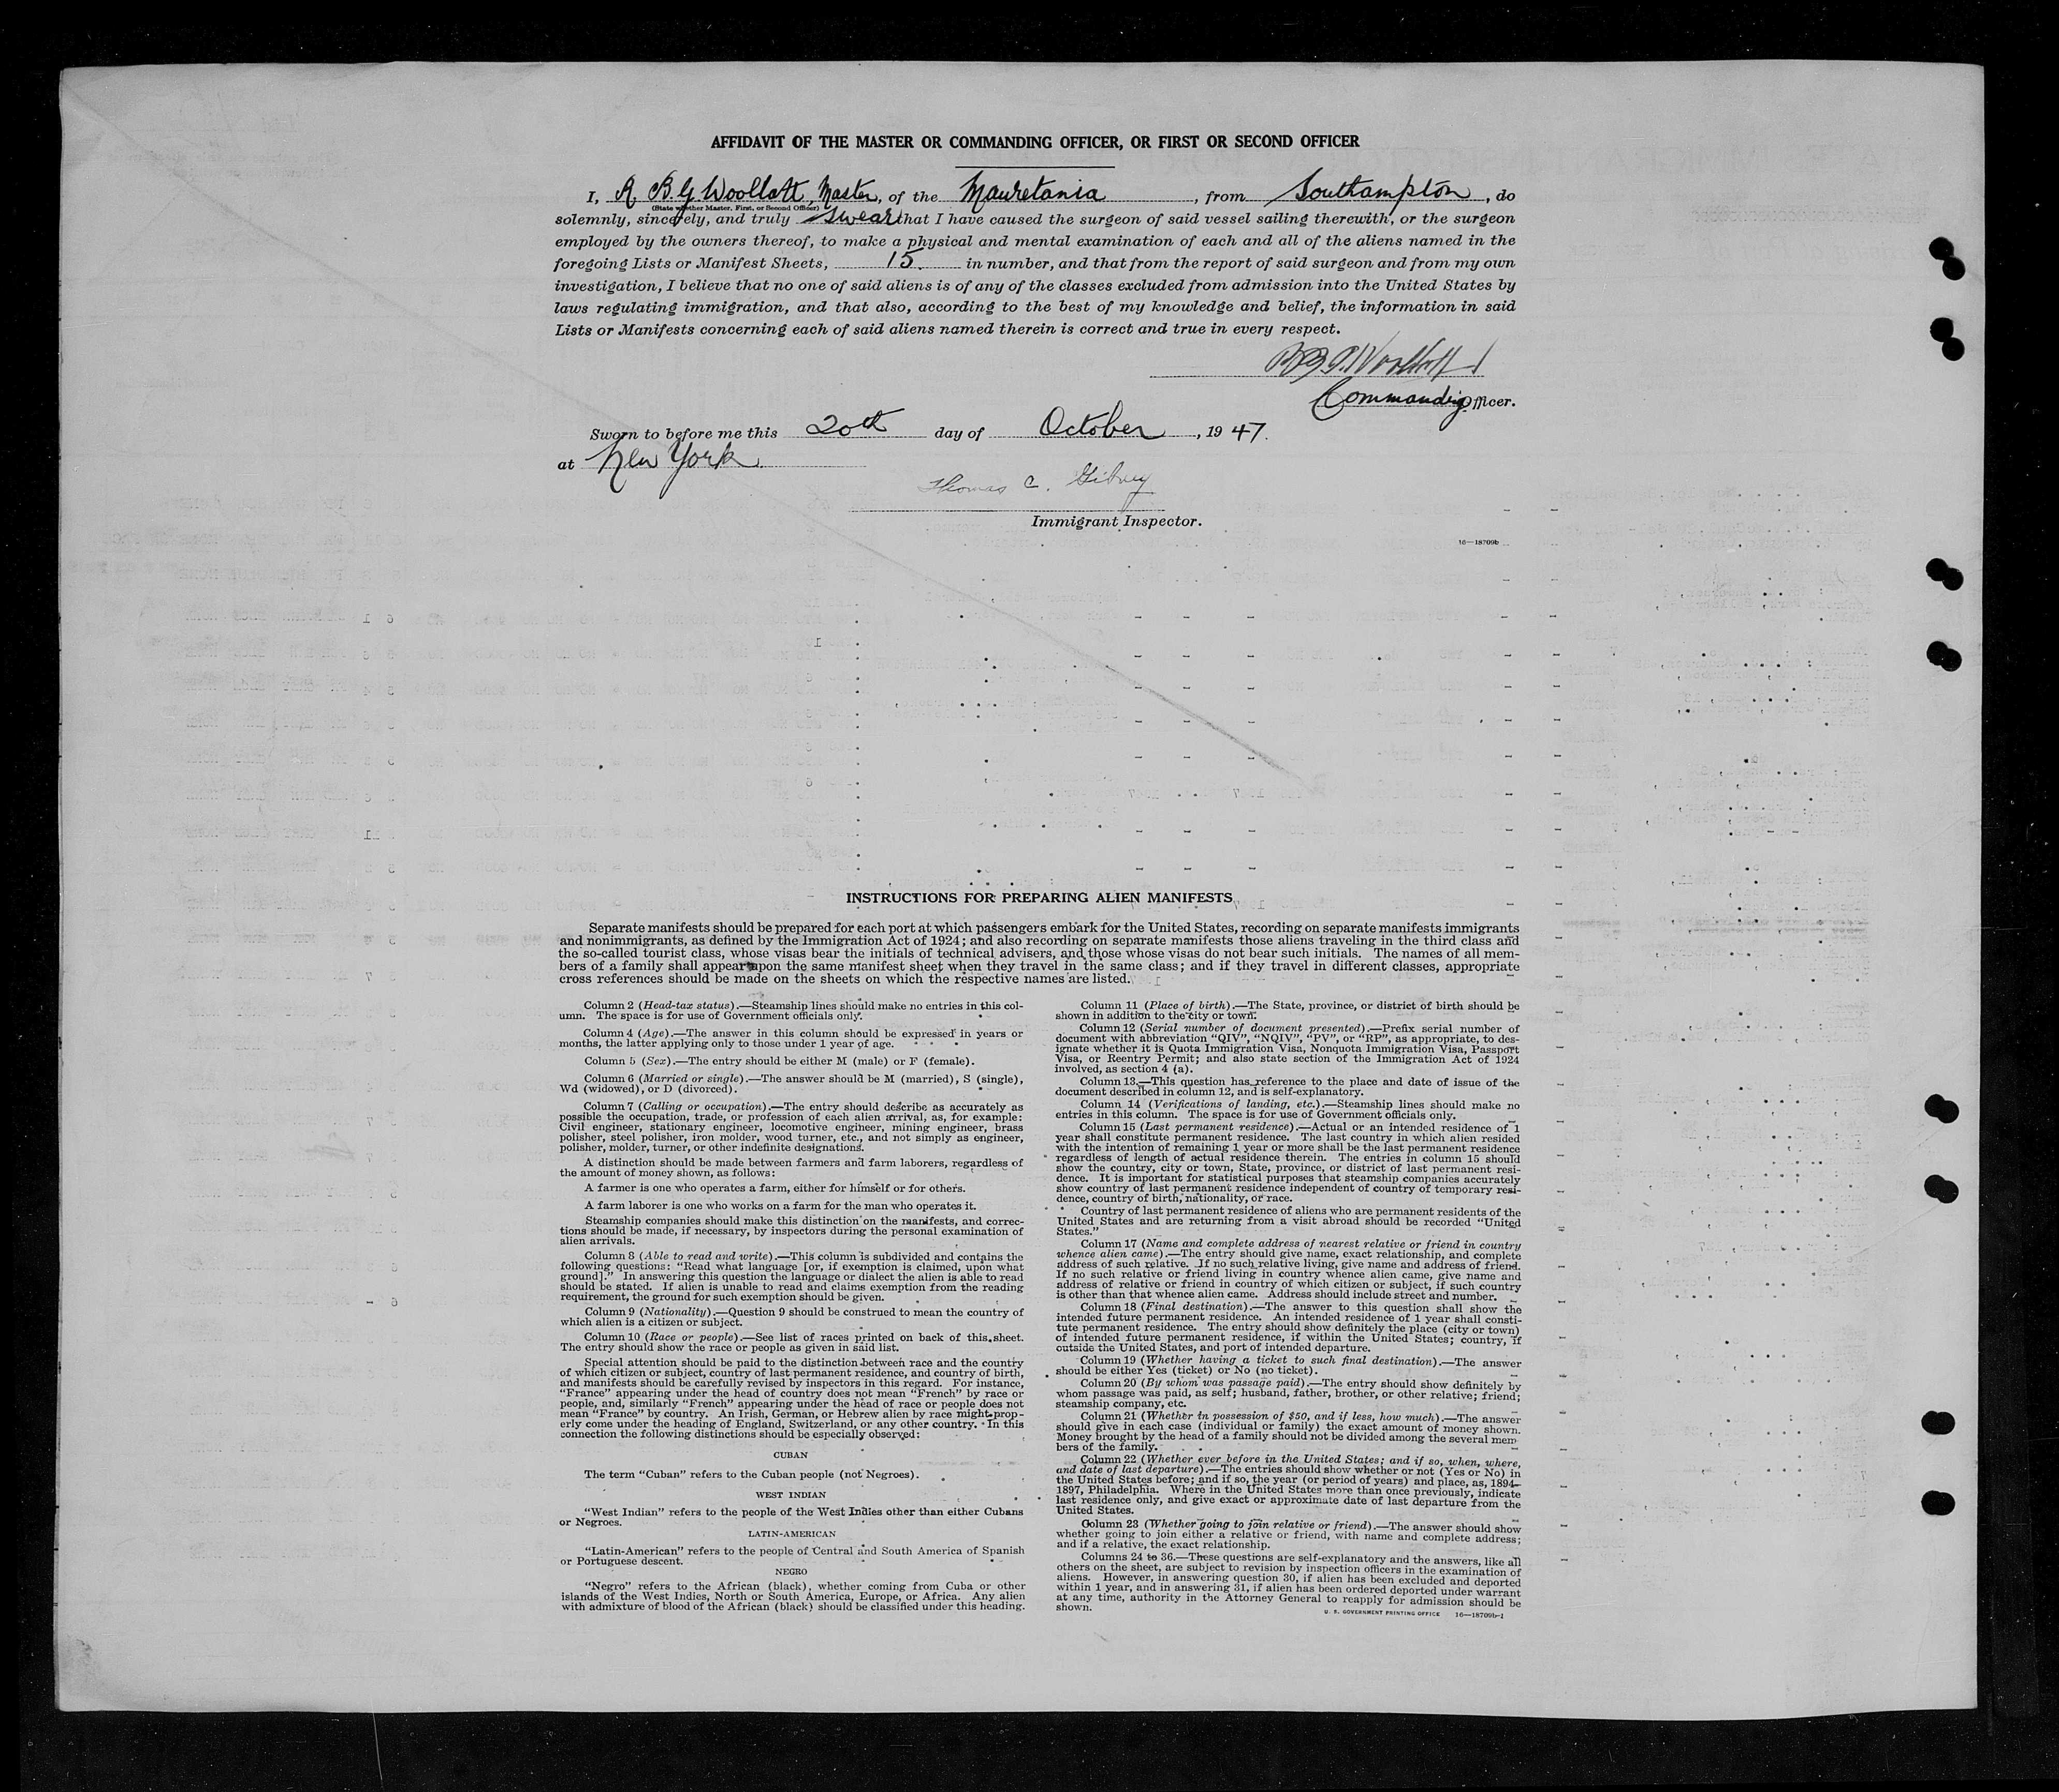 AFFIDAVIT OF THE MASTER OR COMMANDING OFFICER, OR FIRST OR SECOND OFFICER
I, R B G Woollatt, Master, of the Mauretania, from Southampton, do
(State whether Master, First, or Second Officer)
solemnly, sincerely, and truly swear that I have caused the surgeon of said vessel sailing therewith, or the surgeon
employed by the owners thereof, to make a physical and mental examination of each and all of the aliens named in the
foregoing Lists or Manifest Sheets, 15. in number, and that from the report of said surgeon and from my own
investigation, I believe that no one of said aliens is of any of the classes excluded from admission into the United States by
laws regulating immigration, and that also, according to the best of my knowledge and belief, the information in said
Lists or Manifests concerning each of said aliens named therein is correct and true in every respect.
R B G Woollatt
Commanding Officer.
Sworn to before me this 20th day of October, 1947.
at New York.
Thomas C.
Immigrant Inspector.
16—18709b
INSTRUCTIONS FOR PREPARING ALIEN MANIFESTS
Separate manifests should be prepared for each port at which passengers embark for the United States, recording on separate manifests immigrants
and nonimmigrants, as defined by the Immigration Act of 1924; and also recording on separate manifests those aliens traveling in the third class and
the so-called tourist class, whose visas bear the initials of technical advisers, and those whose visas do not bear such initials. The names of all mem-
bers of a family shall appear upon the same manifest sheet when they travel in the same class; and if they travel in different classes, appropriate
cross references should be made on the sheets on which the respective names are listed.
Column 2 (Head-tax status).—Steamship lines should make no entries in this col-
umn. The space is for use of Government officials only.
Column 4 (Age).—The answer in this column should be expressed in years or
months, the latter applying only to those under 1 year of age.
Column 5 (Sex).—The entry should be either M (male) or F (female).
Column 6 (Married or single).—The answer should be M (married), S (single),
Wd (widowed), or D (divorced).
Column 7 (Calling or occupation).—The entry should describe as accurately as
possible the occupation, trade, or profession of each alien arrival, as, for example:
Civil engineer, stationary engineer, locomotive engineer, mining engineer, brass
polisher, steel polisher, iron molder, wood turner, etc., and not simply as engineer,
polisher, molder, turner, or other indefinite designations.
A distinction should be made between farmers and farm laborers, regardless of
the amount of money shown, as follows:
A farmer is one who operates a farm, either for himself or for others.
A farm laborer is one who works on a farm for the man who operates it.
Steamship companies should make this distinction on the manifests, and correc-
tions should be made, if necessary, by inspectors during the personal examination of
alien arrivals.
Column 8 (Able to read and write).—This column is subdivided and contains the
following questions: "Read what language [or, if exemption is claimed, upon what
ground]." In answering this question the language or dialect the alien is able to read
should be stated. If alien is unable to read and claims exemption from the reading
requirement, the ground for such exemption should be given.
Column 9 (Nationality).—Question 9 should be construed to mean the country of
which alien is a citizen or subject.
Column 10 (Race or people).—See list of races printed on back of this sheet.
The entry should show the race or people as given in said list.
Special attention should be paid to the distinction between race and the country
of which citizen or subject, country of last permanent residence, and country of birth,
and manifests should be carefully revised by inspectors in this regard. For instance,
"France" appearing under the head of country does not mean "French" by race or
people, and, similarly "French" appearing under the head of race or people does not
mean "France" by country. An Irish, German, or Hebrew alien by race might prop-
erly come under the heading of England, Switzerland, or any other country. In this
connection the following distinctions should be especially observed:
CUBAN
The term "Cuban" refers to the Cuban people (not Negroes).
WEST INDIAN
"West Indian" refers to the people of the West Indies other than either Cubans
or Negroes.
LATIN-AMERICAN
"Latin-American" refers to the people of Central and South America of Spanish
or Portuguese descent.
NEGRO
"Negro" refers to the African (black), whether coming from Cuba or other
islands of the West Indies, North or South America, Europe, or Africa. Any alien
with admixture of blood of the African (black) should be classified under this heading.
Column 11 (Place of birth).—The State, province, or district of birth should be
shown in addition to the city or town.
Column 12 (Serial number of document presented).—Prefix serial number of
document with abbreviation "QIV", "NQIV", "PV", or "RP", as appropriate, to des-
ignate whether it is Quota Immigration Visa, Nonquota Immigration Visa, Passport
Visa, or Reentry Permit; and also state section of the Immigration Act of 1924
involved, as section 4 (a).
Column 13.—This question has reference to the place and date of issue of the
document described in column 12, and is self-explanatory.
Column 14 (Verifications of landing, etc.).—Steamship lines should make no
entries in this column. The space is for use of Government officials only.
Column 15 (Last permanent residence).—Actual or an intended residence of 1
year shall constitute permanent residence. The last country in which alien resided
with the intention of remaining 1 year or more shall be the last permanent residence
regardless of length of actual residence therein. The entries in column 15 should
show the country, city or town, State, province, or district of last permanent resi-
dence. It is important for statistical purposes that steamship companies accurately
show country of last permanent residence independent of country of temporary resi-
dence, country of birth, nationality, or race.
Country of last permanent residence of aliens who are permanent residents of the
United States and are returning from a visit abroad should be recorded "United
States."
Column 17 (Name and complete address of nearest relative or friend in country
whence alien came).—The entry should give name, exact relationship, and complete
address of such relative. If no such relative living, give name and address of friend.
If no such relative or friend living in country whence alien came, give name and
address of relative or friend in country of which citizen or subject, if such country
is other than that whence alien came. Address should include street and number.
Column 18 (Final destination).—The answer to this question shall show the
intended future permanent residence. An intended residence of 1 year shall consti-
tute permanent residence. The entry should show definitely the place (city or town)
of intended future permanent residence, if within the United States; country, if
outside the United States, and port of intended departure.
Column 19 (Whether having a ticket to such final destination).—The answer
should be either Yes (ticket) or No (no ticket).
Column 20 (By whom was passage paid).—The entry should show definitely by
whom passage was paid, as self; husband, father, brother, or other relative; friend;
steamship company, etc.
Column 21 (Whether in possession of $50, and if less, how much).—The answer
should give in each case (individual or family) the exact amount of money shown.
Money brought by the head of a family should not be divided among the several mem
bers of the family.
Column 22 (Whether ever before in the United States; and if so, when, where,
and date of last departure).—The entries should show whether or not (Yes or No) in
the United States before; and if so, the year (or period of years) and place, as, 1894–
1897, Philadelphia. Where in the United States more than once previously, indicate
last residence only, and give exact or approximate date of last departure from the
United States.
Column 23 (Whether going to join relative or friend).—The answer should show
whether going to join either a relative or friend, with name and complete address;
and if a relative, the exact relationship.
Columns 24 to 36.—These questions are self-explanatory and the answers, like all
others on the sheet, are subject to revision by inspection officers in the examination of
aliens. However, in answering question 30, if alien has been excluded and deported
within 1 year, and in answering 31, if alien has been ordered deported under warrant
at any time, authority in the Attorney General to reapply for admission should be
shown.
U. S. GOVERNMENT PRINTING OFFICE 16—18709b-1